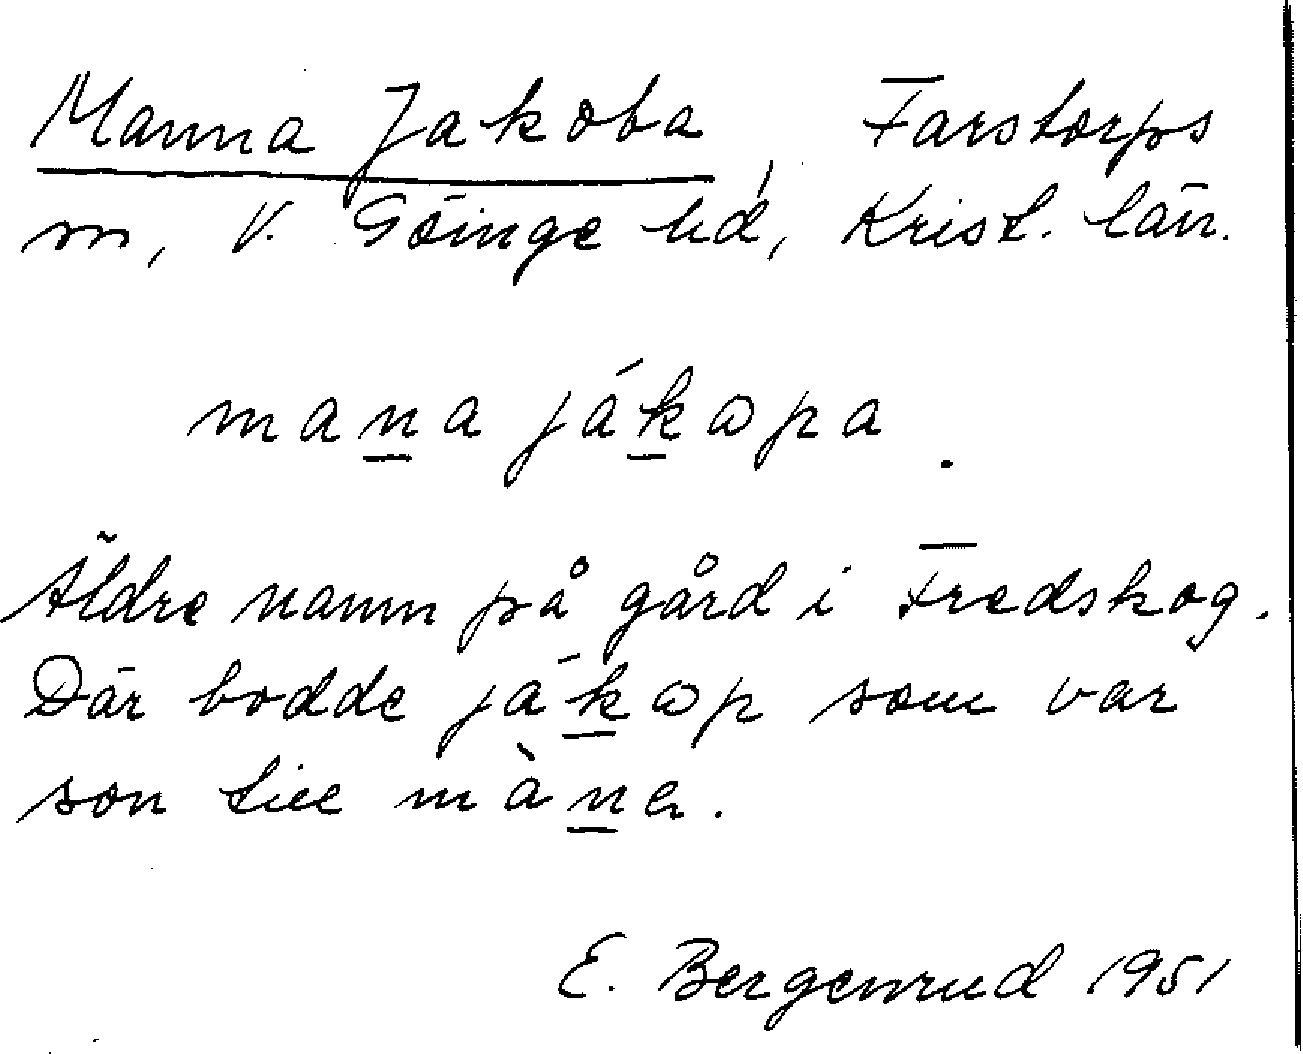 Manna Jakoba, Farstorps
sn, V. Göinge hd, Krist. län.
mana jákopa.
Äldre namn på gård i Fredskog.
Där bodde jákop som var
son till màna.
E. Bergenrud 1951